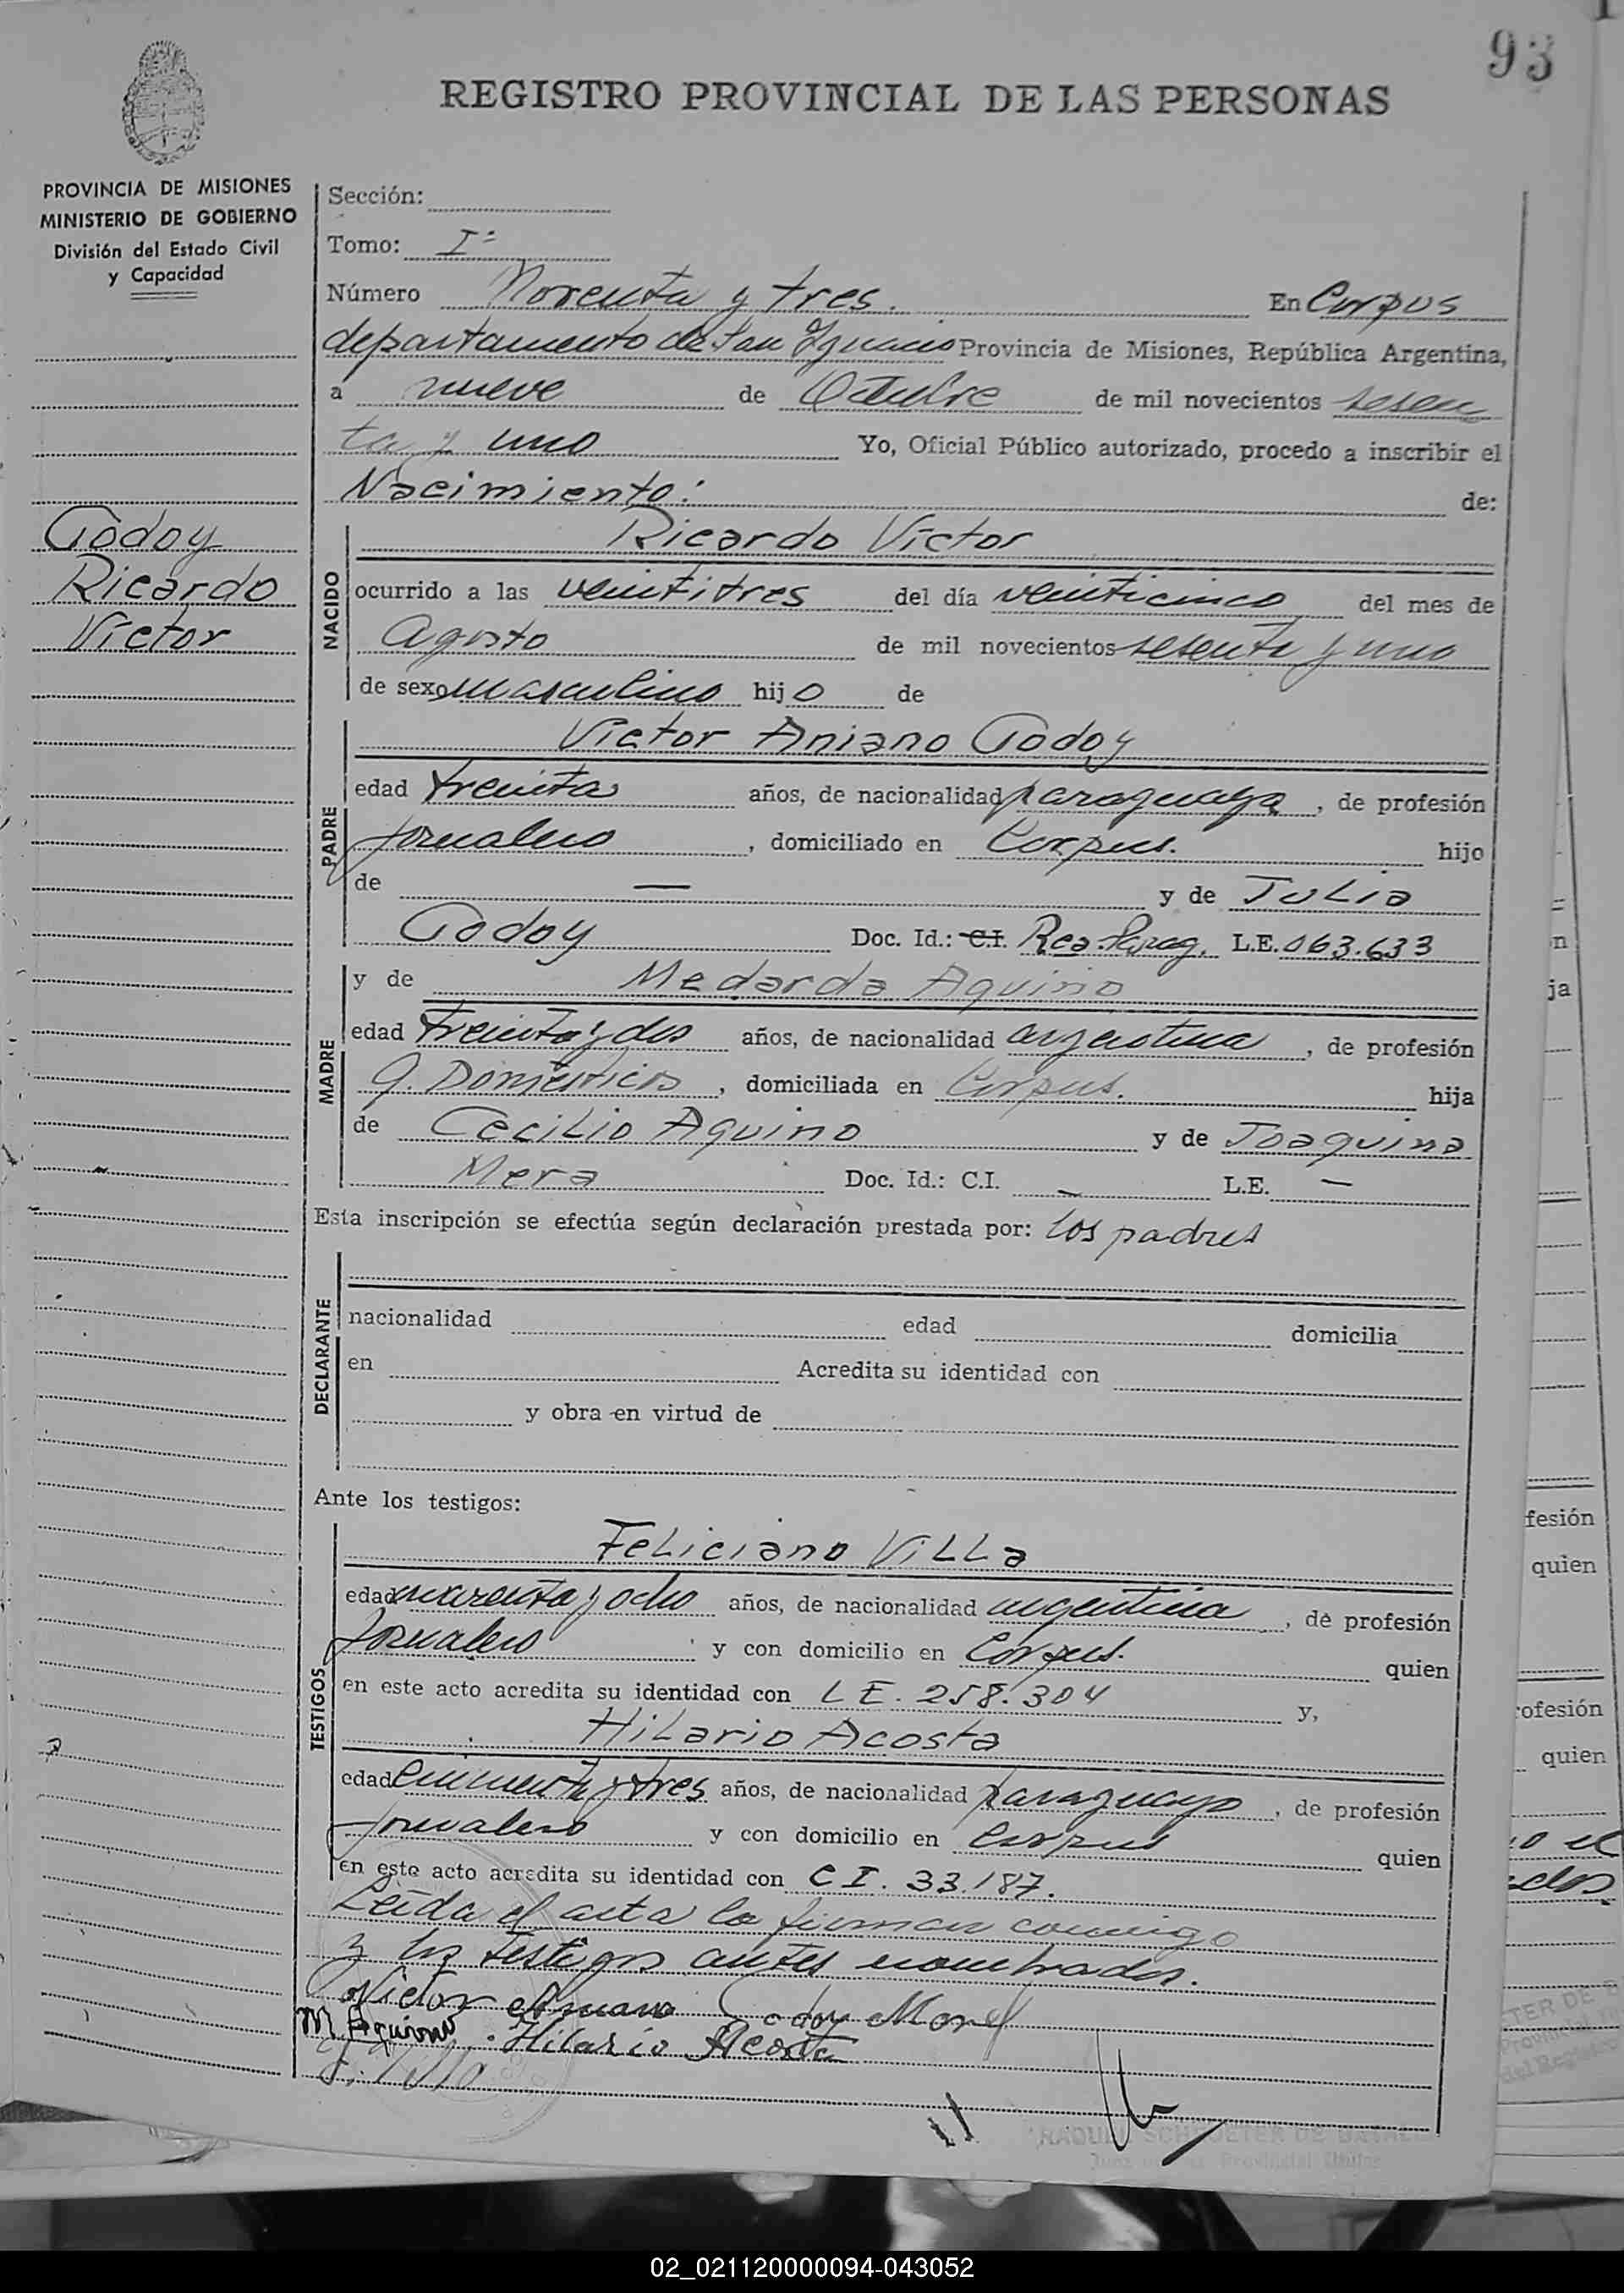 93
REGISTRO PROVINCIAL DE LAS PERSONAS
PROVINCIA DE MISIONES
MINISTERIO DE GOBIERNO
División del Estado Civil
y Capacidad
Sección:
Tomo: Iº
Número Noventa y tres. En Corpus
departamento de San Ignacio Provincia de Misiones, República Argentina,
a nueve de Octubre de mil novecientos sesen
ta y uno Yo, Oficial Público autorizado, procedo a inscribir el
Nacimiento: de:
Godoy
Ricardo
Víctor
NACIDO
Ricardo Víctor
ocurrido a las veintitres del día veinticinco del mes de
Agosto de mil novecientos sesenta y uno
de sexo masculino hijo de
PADRE
Víctor Aniano Godoy
edad treinta años, de nacionalidad paraguaya, de profesión
Jornalero, domiciliado en Corpus. hijo
de — y de Julia
Godoy Doc. Id.: C.I. Rca. Parag. L.E. 063.633
MADRE
y de Medarda Aquino
edad treinta y dos años, de nacionalidad argentina, de profesión
Q. Domésticos, domiciliada en Corpus. hija
de Cecilio Aquino y de Joaquina
Mera Doc. Id.: C.I. — L.E. —
Esta inscripción se efectúa según declaración prestada por: los padres
DECLARANTE
nacionalidad edad domicilia
en Acredita su identidad con
y obra en virtud de
Ante los testigos:
TESTIGOS
Feliciano Villa
edad cuarenta y ocho años, de nacionalidad argentina, de profesión
Jornalero y con domicilio en Corpus. quien
en este acto acredita su identidad con L E. 258.304 y,
Hilario Acosta
edad cincuenta y tres años, de nacionalidad paraguayo, de profesión
Jornalero y con domicilio en Corpus quien
en este acto acredita su identidad con C I. 33.187.
Leída el acta la firman conmigo
y los testigos antes nombrados.
Victor Aniano Godoy Morel
M Aquino. Hilario Acosta
F. Villa
RAQUEL SCHROETER DE
n
ja
fesión
quien
ofesión
quien
02_021120000094-043052